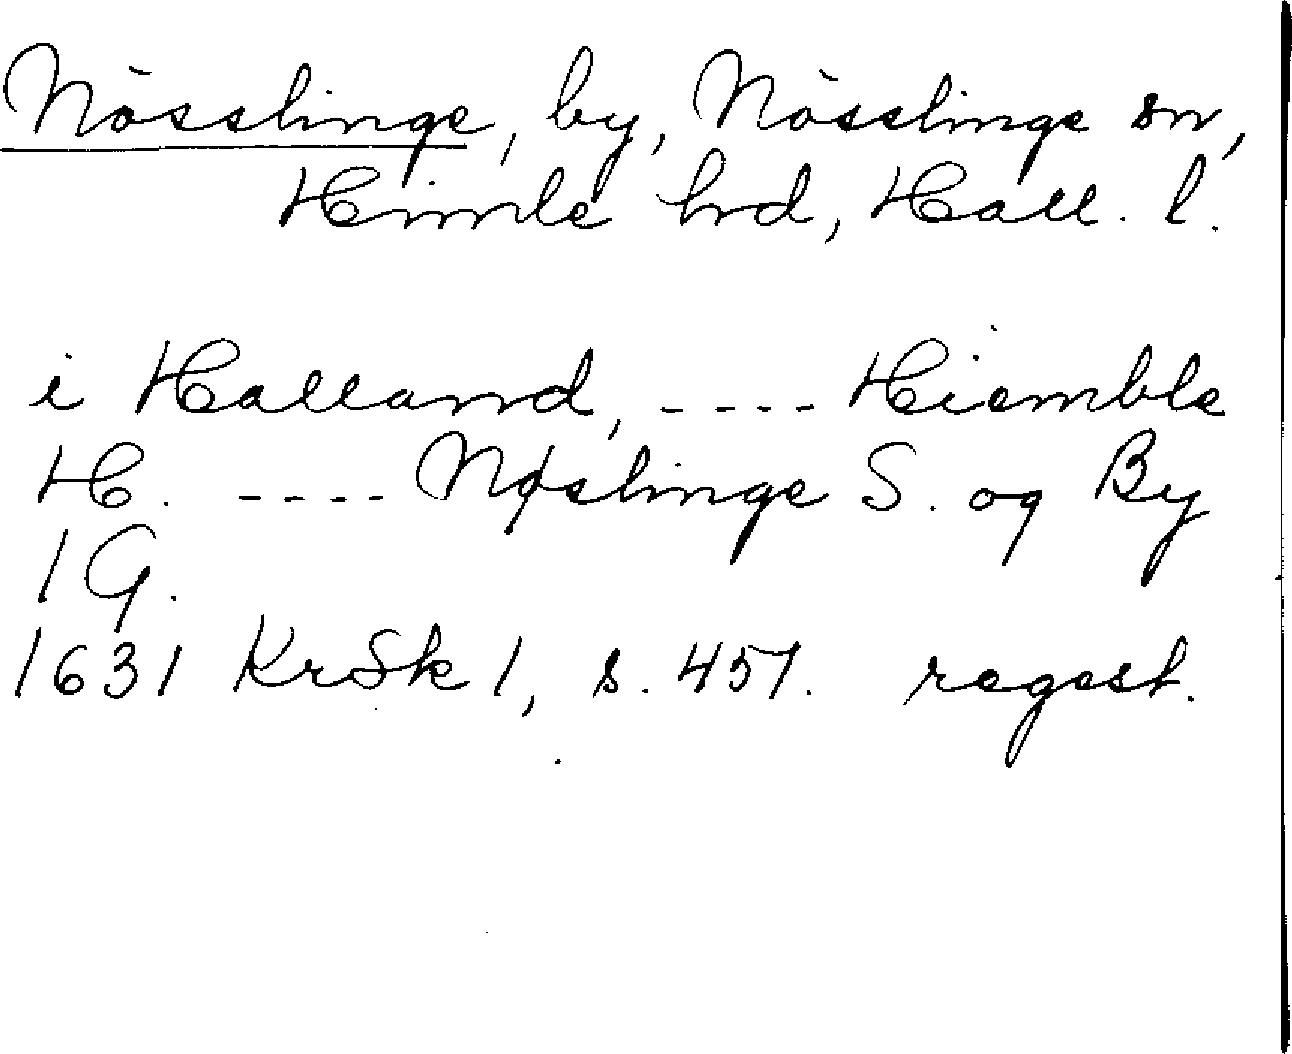 Nösslinge, by, Nösslinge sn,
Himle hrd, Hall. l.
i Halland, ---- Hiemble
H. ---- Nøslinge S. og By
1 G.
1631 KrSk 1, s. 457. regest.